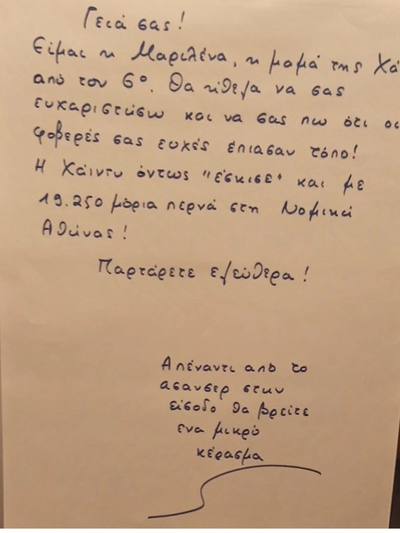 Γειά σας!
Είμαι η Μαριλένα, η μαμά της
από τον 6º. Θα ήθελα να σας
ευχαριστώσω και να σας πω ότι οι
φοβερές σας ευχές έπιασαν τόπο!
Η Χάιντυ όντως "έσκισε" και με
19.250 μόρια περνά στη Νομική
Αθήνας!
Παρτάρετε ελεύθερα!
Απέναντι από το
ασανσερ στην
είσοδο θα βρείτε
ενα μικρό
κέρασμα